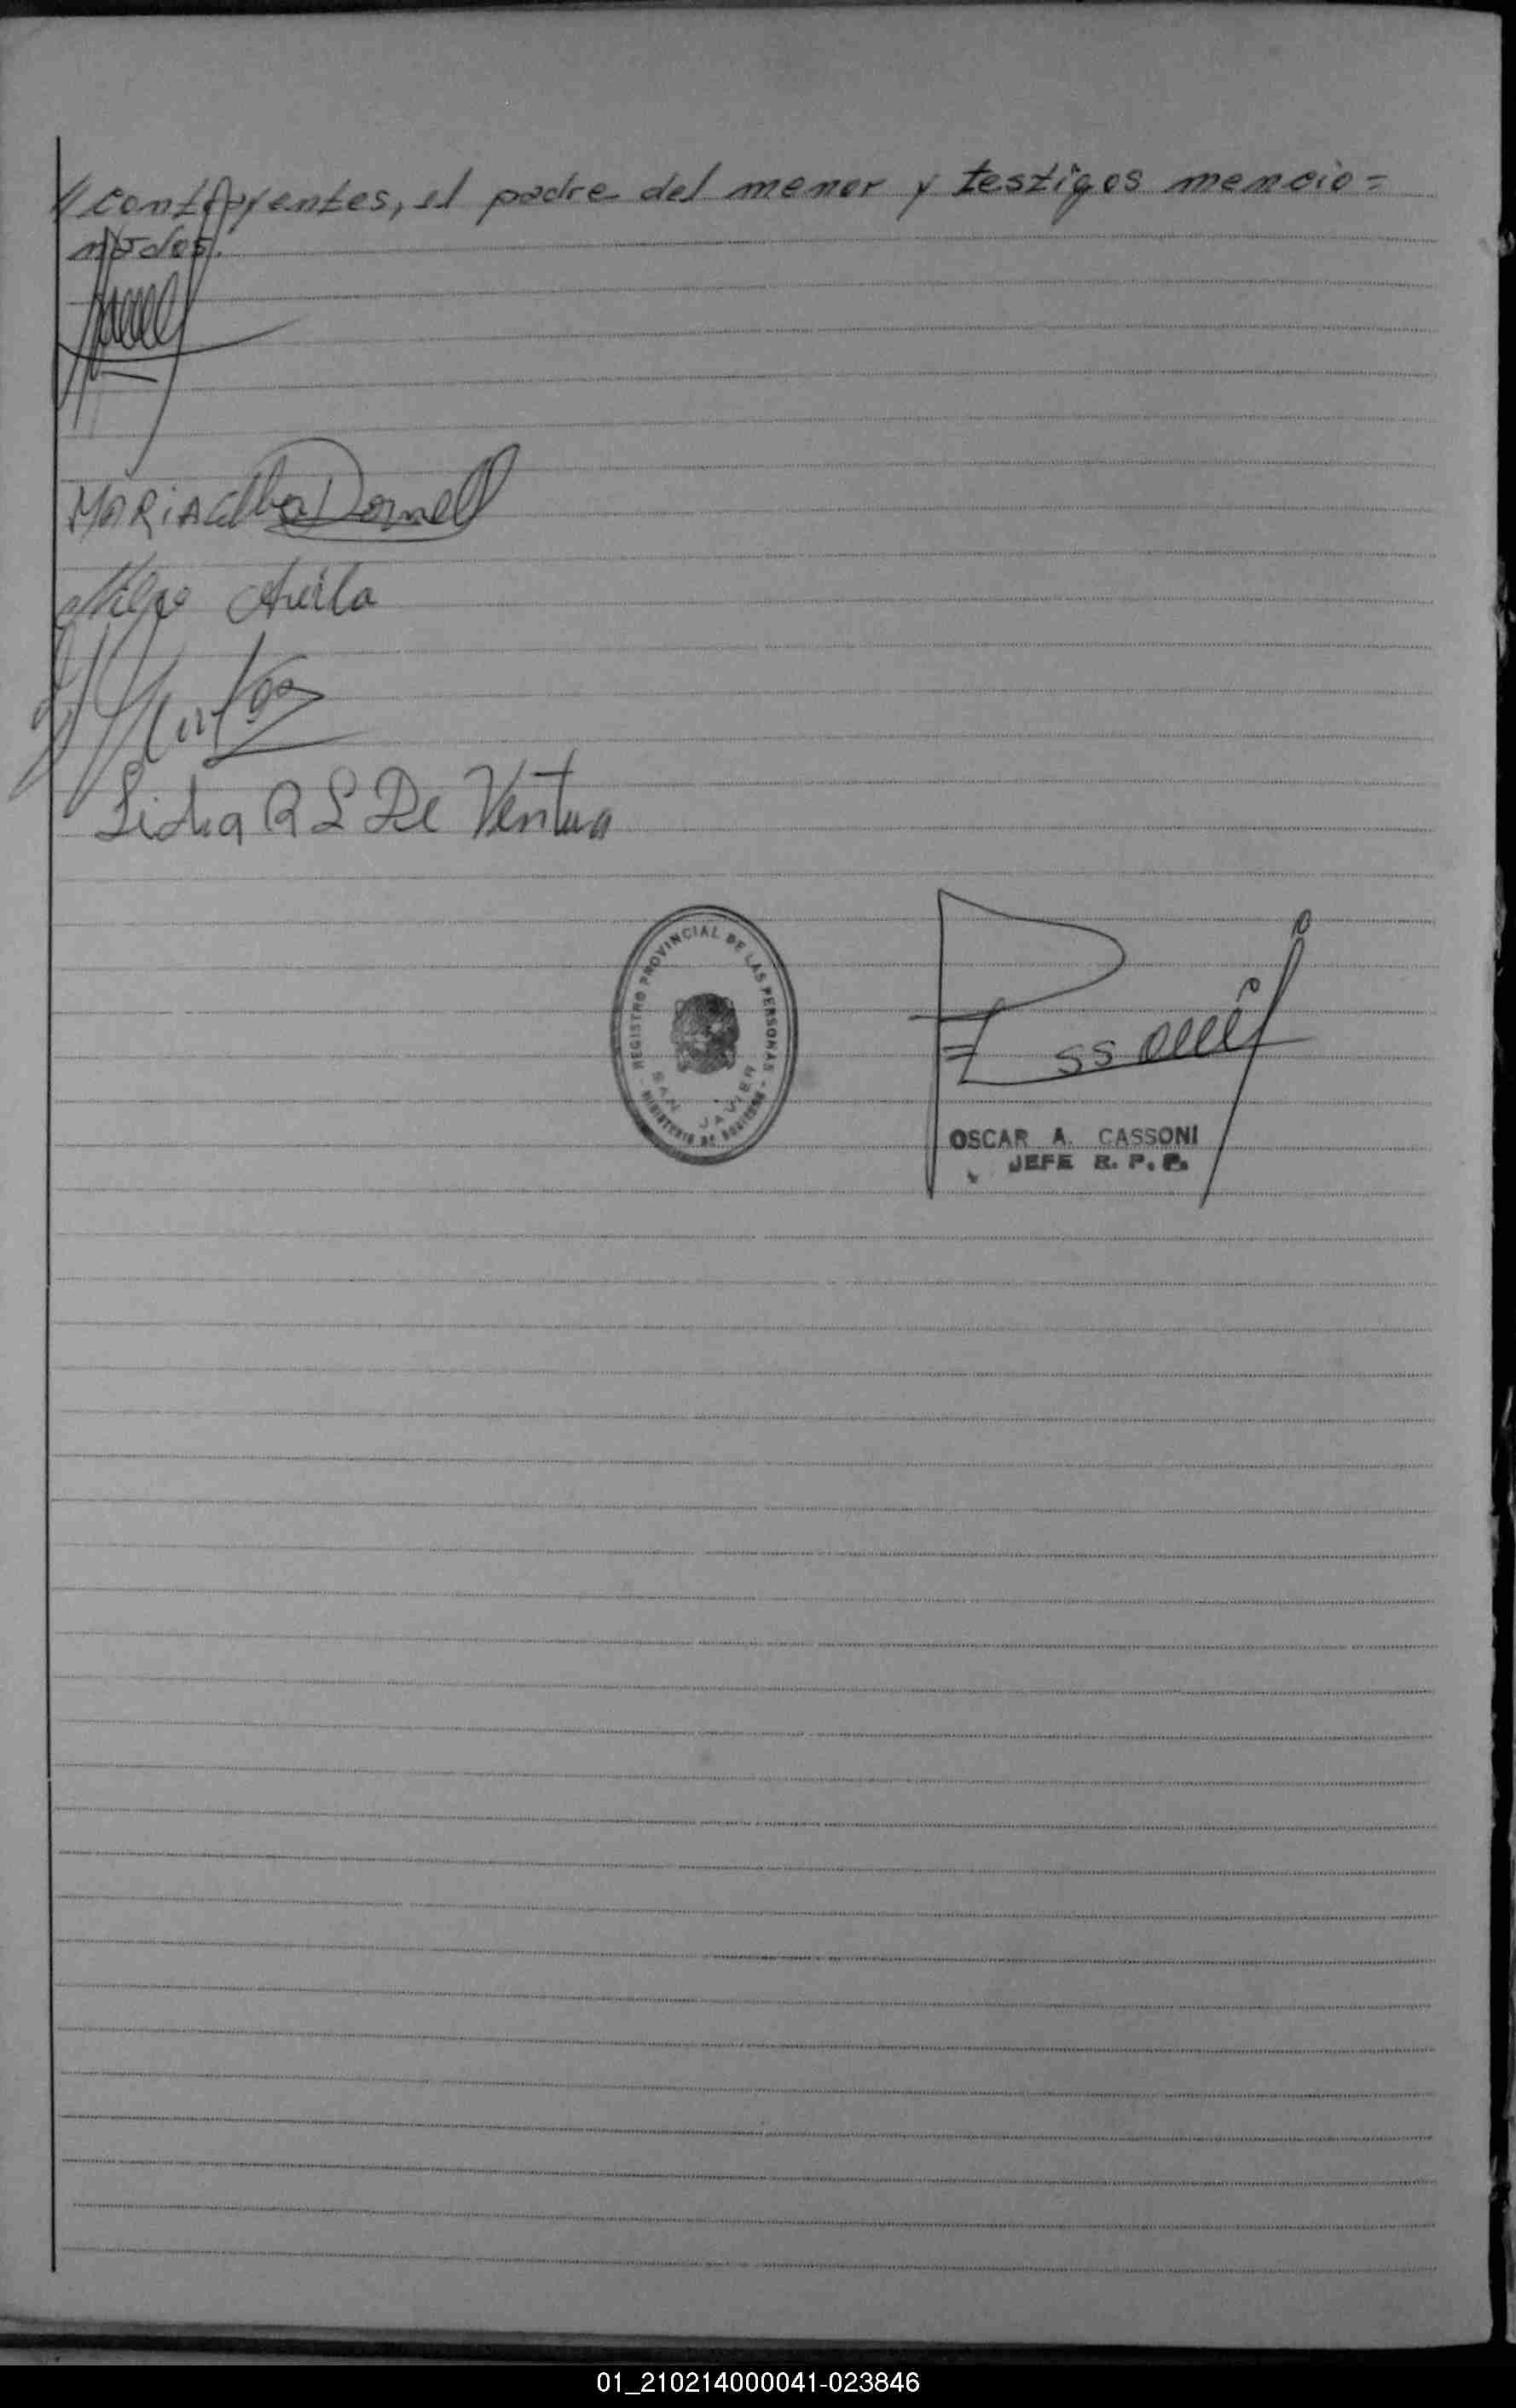 //contrayentes, el padre del menor y testigos mencio=
nados.
MARIA Elba Dornell
Avila
Lidia R L De Ventura
REGISTRO PROVINCIAL DE LAS PERSONAS
SAN JAVIER
MINISTERIO DE GOBIERNO
OSCAR A. CASSONI
JEFE R. P. P.
01_210214000041-023846